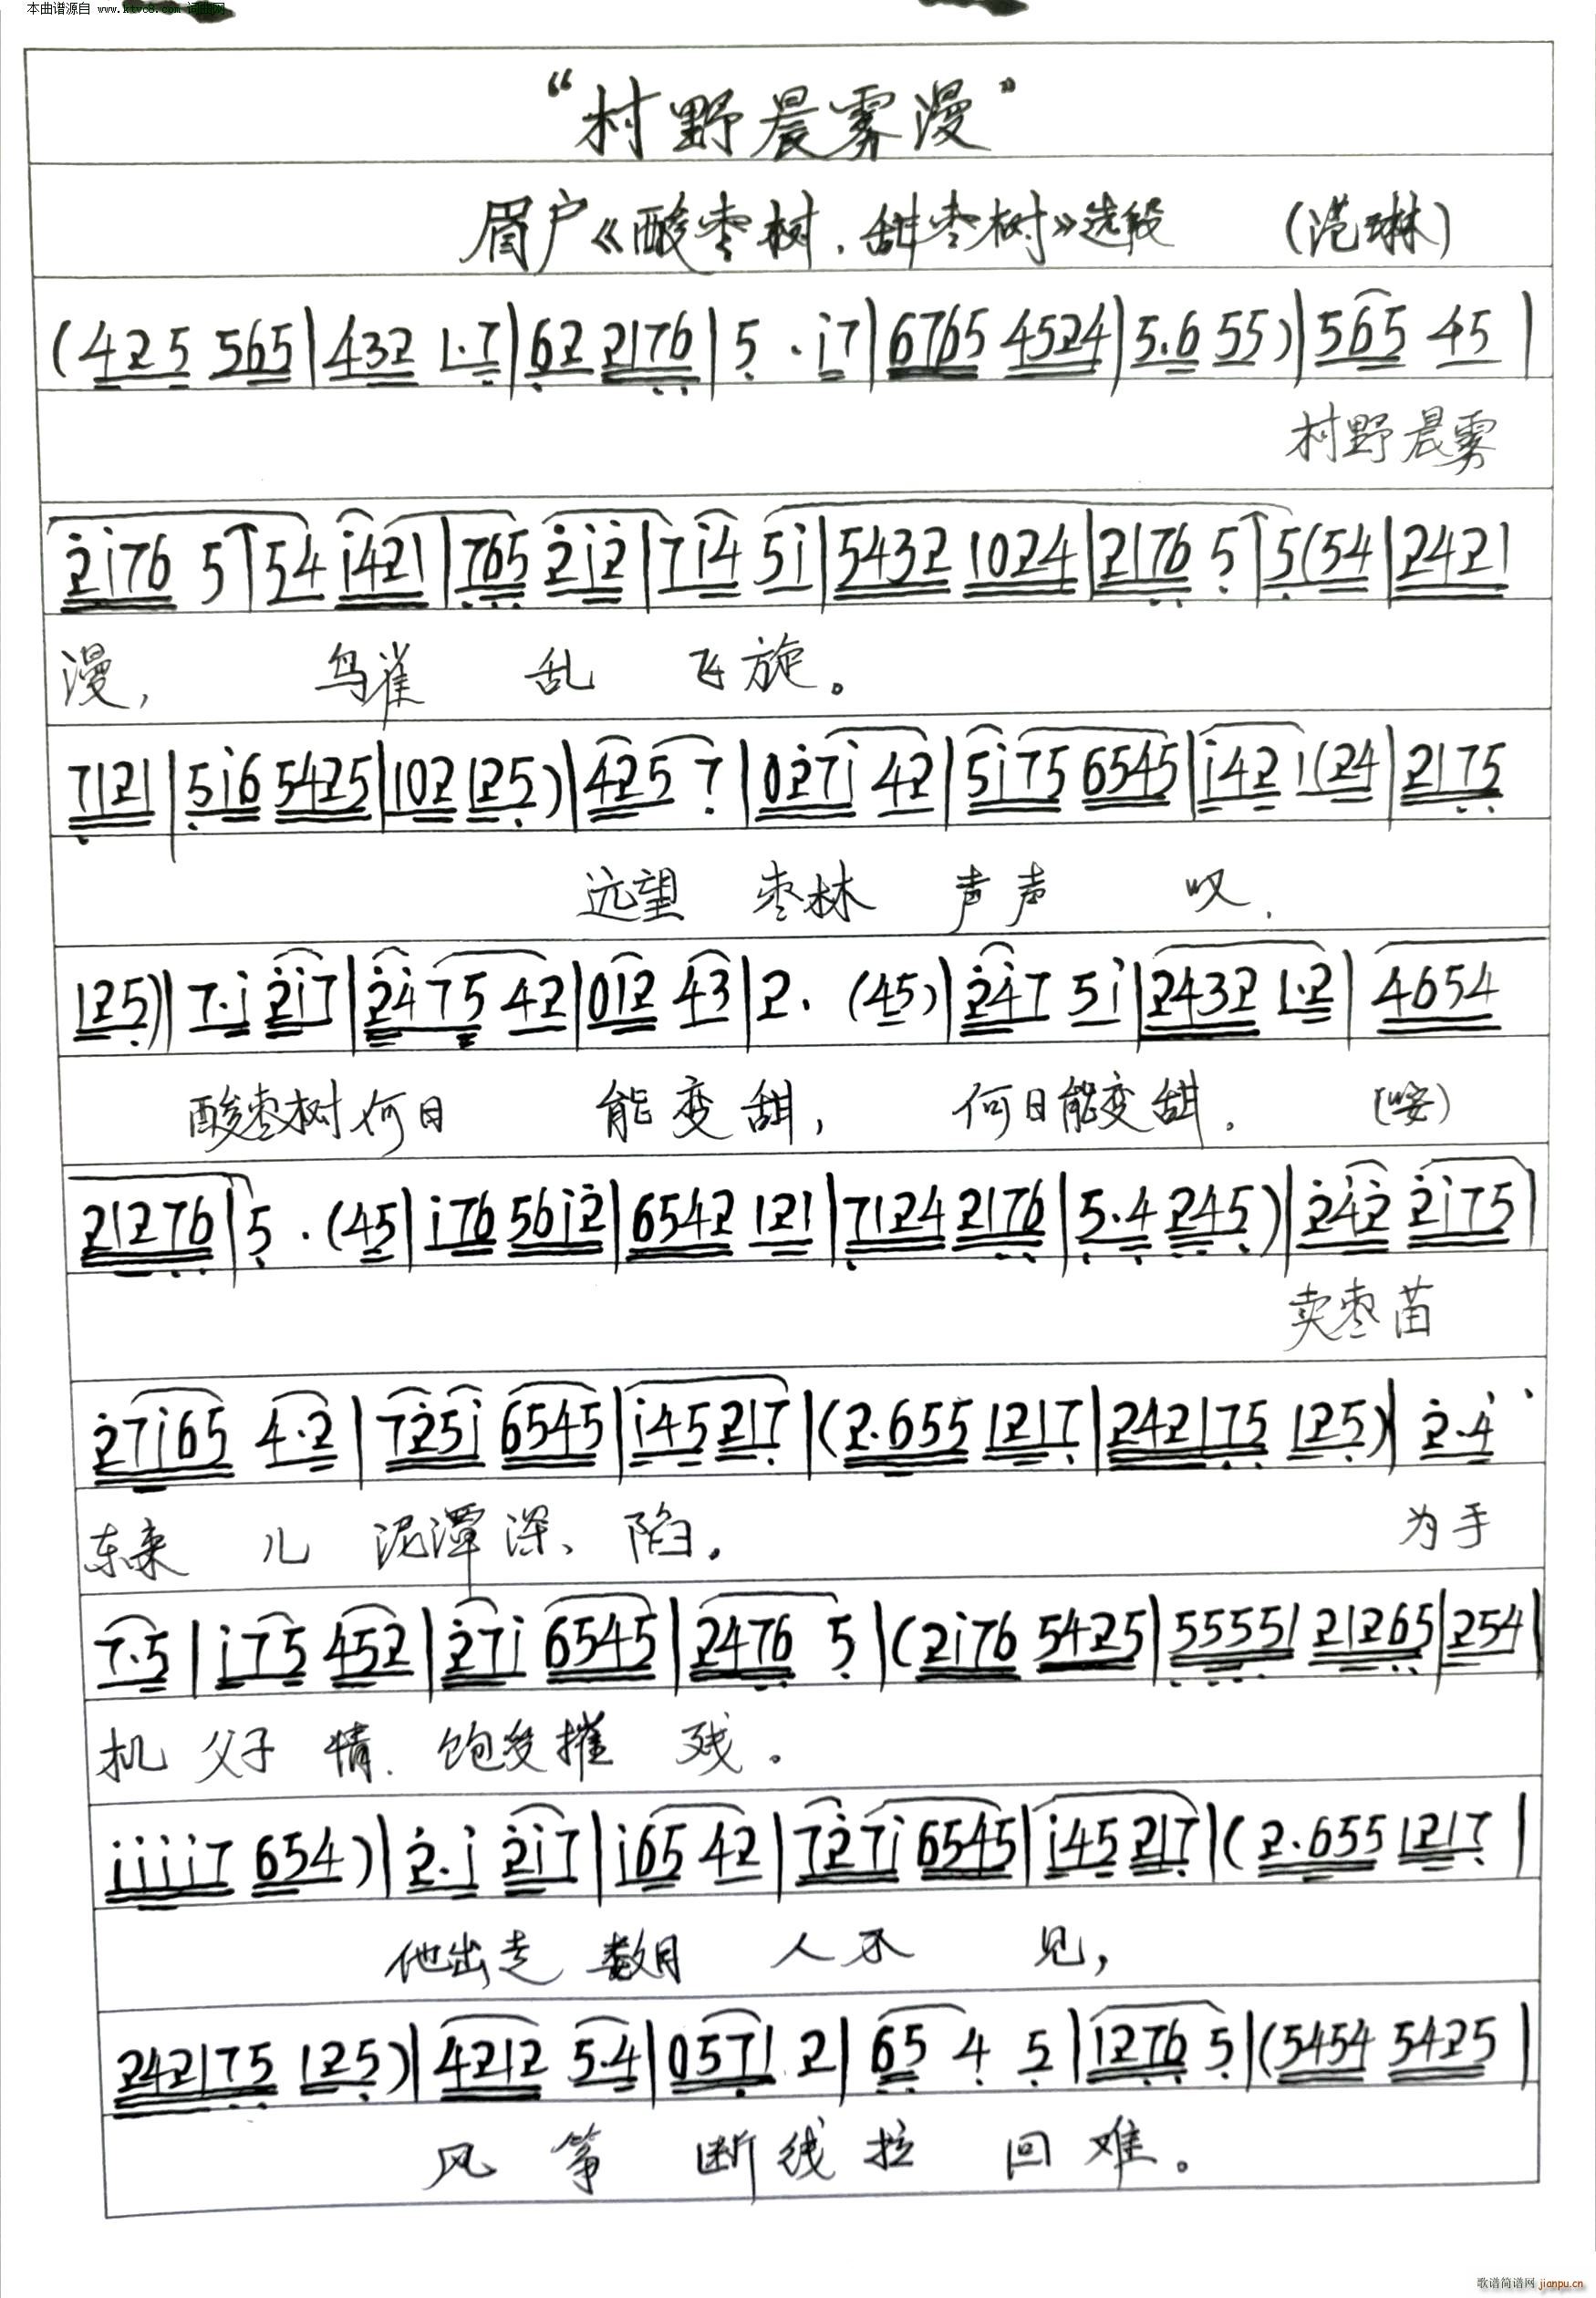 本曲谱源自 www.ktvc8.com 词曲网
“村野晨雾漫”
眉户《酸枣树、甜枣树》选段 (范琳)
(425 565|432 1·7|62 2176|5·i7|6765 4524|5·6 55)|565 45|
村野晨雾
2i76 5|54 i421|765 2i2|7i4 5i|5432 1024|2176 5|5(54|2421
漫, 鸟雀 乱 飞旋。
7121|5i6 5425|102 125)|425 7|027i 42|5i75 6545|i42 1(24|2175
远望 枣林 声声 叹.
125)|7·i 2i7|2475 42|012 43|2·(45)|247 5i|2432 1·2|4654
酸枣树何日 能变甜, 何日能变甜. (咹)
21276|5·(45|i76 56i2|6542 121|7124 2176|5·4 245)|242 2i75|
卖枣苗
27i65 4·2|725i 6545|i45217|(2·655 1217|242175 125)|2·4
东来 儿 泥潭深、陷. 为手
7·5|i75 452|27i 6545|2476 5|(2i76 5425|55551 21265|254|
机 父子 情. 饱受摧 残。
iiiii7 654)|2·i 2i7|i65 42|727i 6545|i45 217|(2·655 1217|
他出走 数月 人不 见,
242175 125)|4212 5·4|0571 2|65 4 5|1276 5|(5454 5425|
风 筝 断线拉 回难。
歌谱简谱网 jianpu.cn